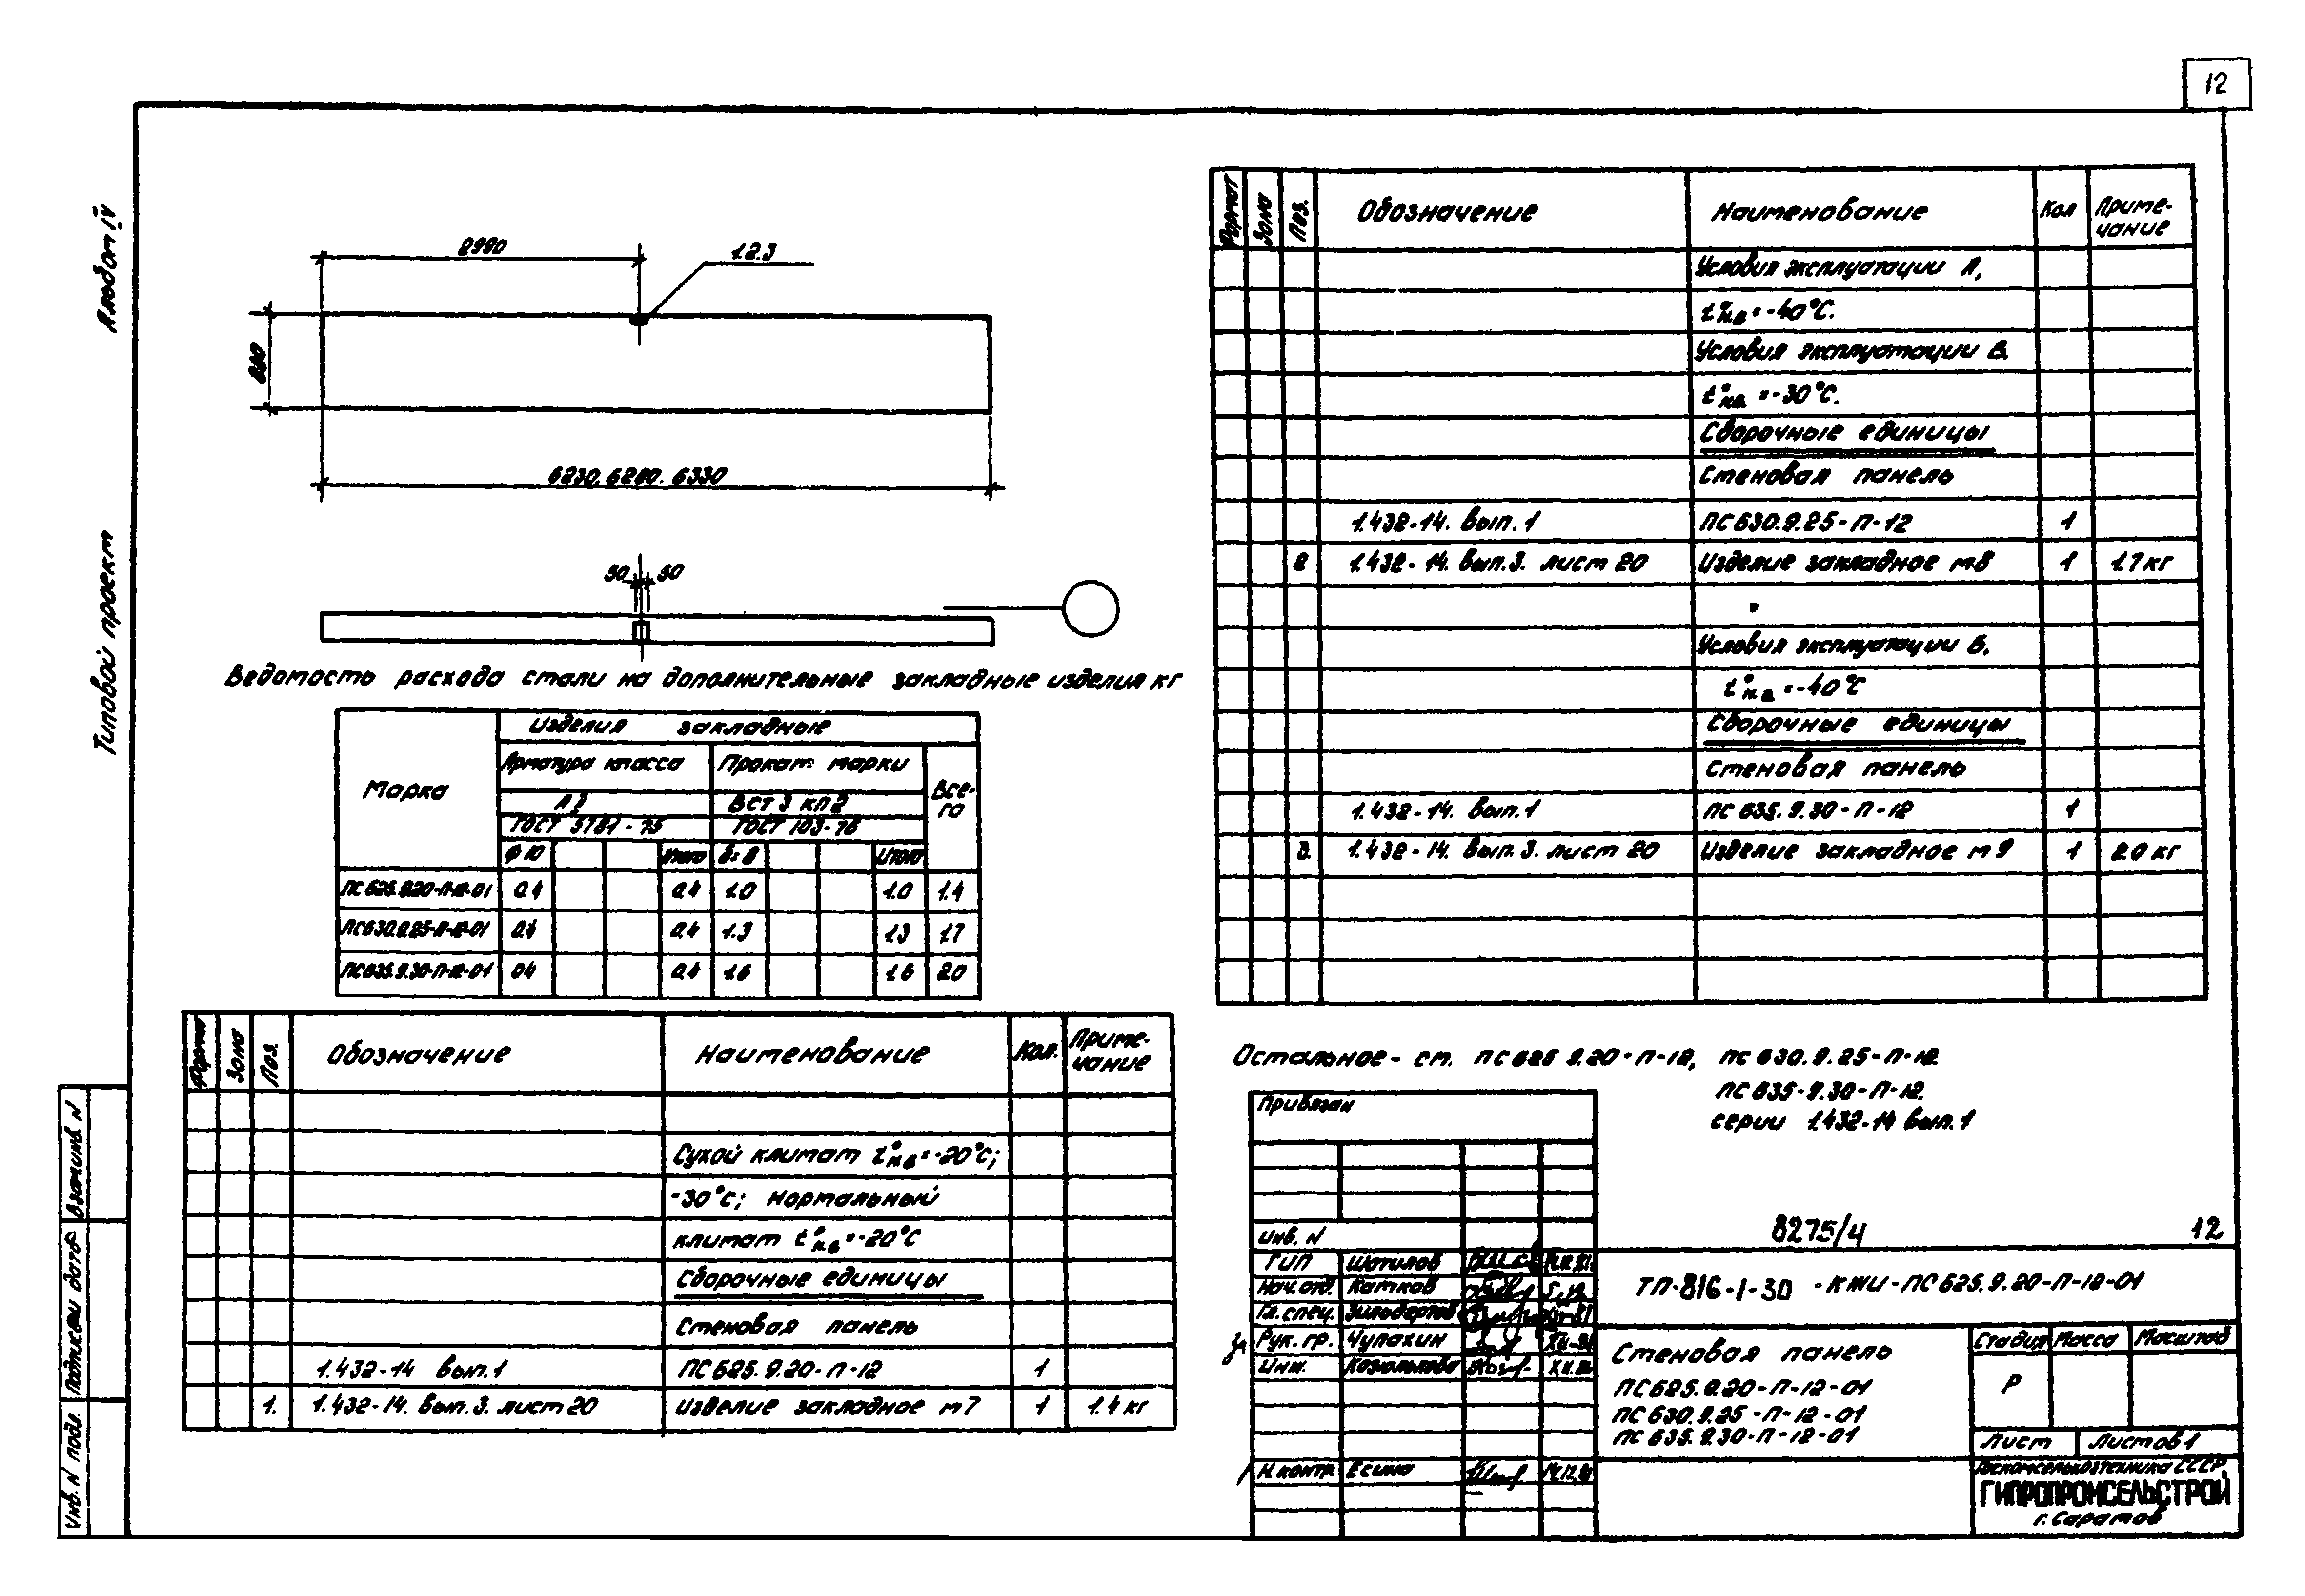 12
Альбом IV
Типовой проект
2990
1.2.3
880
6230. 6280. 6330
50 50
Ведомость расхода стали на дополнительные закладные изделия кг
Марка
Изделия закладные
Арматура класса
Прокат марки
Все-
го
А I
ВСт 3 кп 2
ГОСТ 5781-75
ГОСТ 103-76
ф 10 Итого δ=8 Итого
ПС 625.9.20-П-12-01 0.4 0.4 1.0 1.0 1.4
ПС 630.9.25-П-12-01 0.4 0.4 1.3 1.3 1.7
ПС 635.9.30-П-12-01 04 0.4 1.6 1.6 2.0
Формат Зона Поз. Обозначение Наименование Кол. Приме-
чание
Сухой климат t°н.в=-20°С;
-30°С; Нормальный
климат t°н.в=-20°С
Сборочные единицы
Стеновая панель
1.432-14 вып.1 ПС 625.9.20-П-12 1
1. 1.432-14. вып. 3. лист 20 Изделие закладное м7 1 1.4 кг
Формат Зона Поз. Обозначение Наименование Кол Приме-
чание
Условия эксплуатации А,
t°н.в=-40°С.
Условия эксплуатации В.
t°н.в.=-30°С.
Сборочные единицы
Стеновая панель
1.432-14. вып. 1 ПС 630.9.25-П-12 1
2 1.432-14. вып.3. лист 20 Изделие закладное м8 1 1.7 кг
Условия эксплуатации Б.
t°н.в=-40°С
Сборочные единицы
Стеновая панель
1.432-14. вып.1 ПС 635.9.30-П-12 1
3. 1.432-14. вып. 3. лист 20 Изделие закладное м 9 1 2.0 кг
Остальное - см. ПС 625 9.20-П-12, ПС 630.9.25-П-12.
ПС 635-9.30-П-12.
серии 1.432-14 вып.1
Привязан
Инв. N
8275/4 12
ГИП Шатилов
Нач. отд. Катков
Гл. спец. Зильбертов
Рук. гр. Чупахин
Инж.
Н. контр Есина
ТП-816-1-30 -КЖИ-ПС 625.9.20-П-12-01
Стеновая панель
ПС 625.9.20-П-12-01
ПС 630.9.25-П-12-01
ПС 635.9.30-П-12-01
Стадия Масса Масштаб
Р
Лист Листов 1
Госкомсельхозтехника СССР
ГИПРОПРОМСЕЛЬСТРОЙ
г. Саратов
Взам.инв. N
Подпись и дата
Инв. N подл.